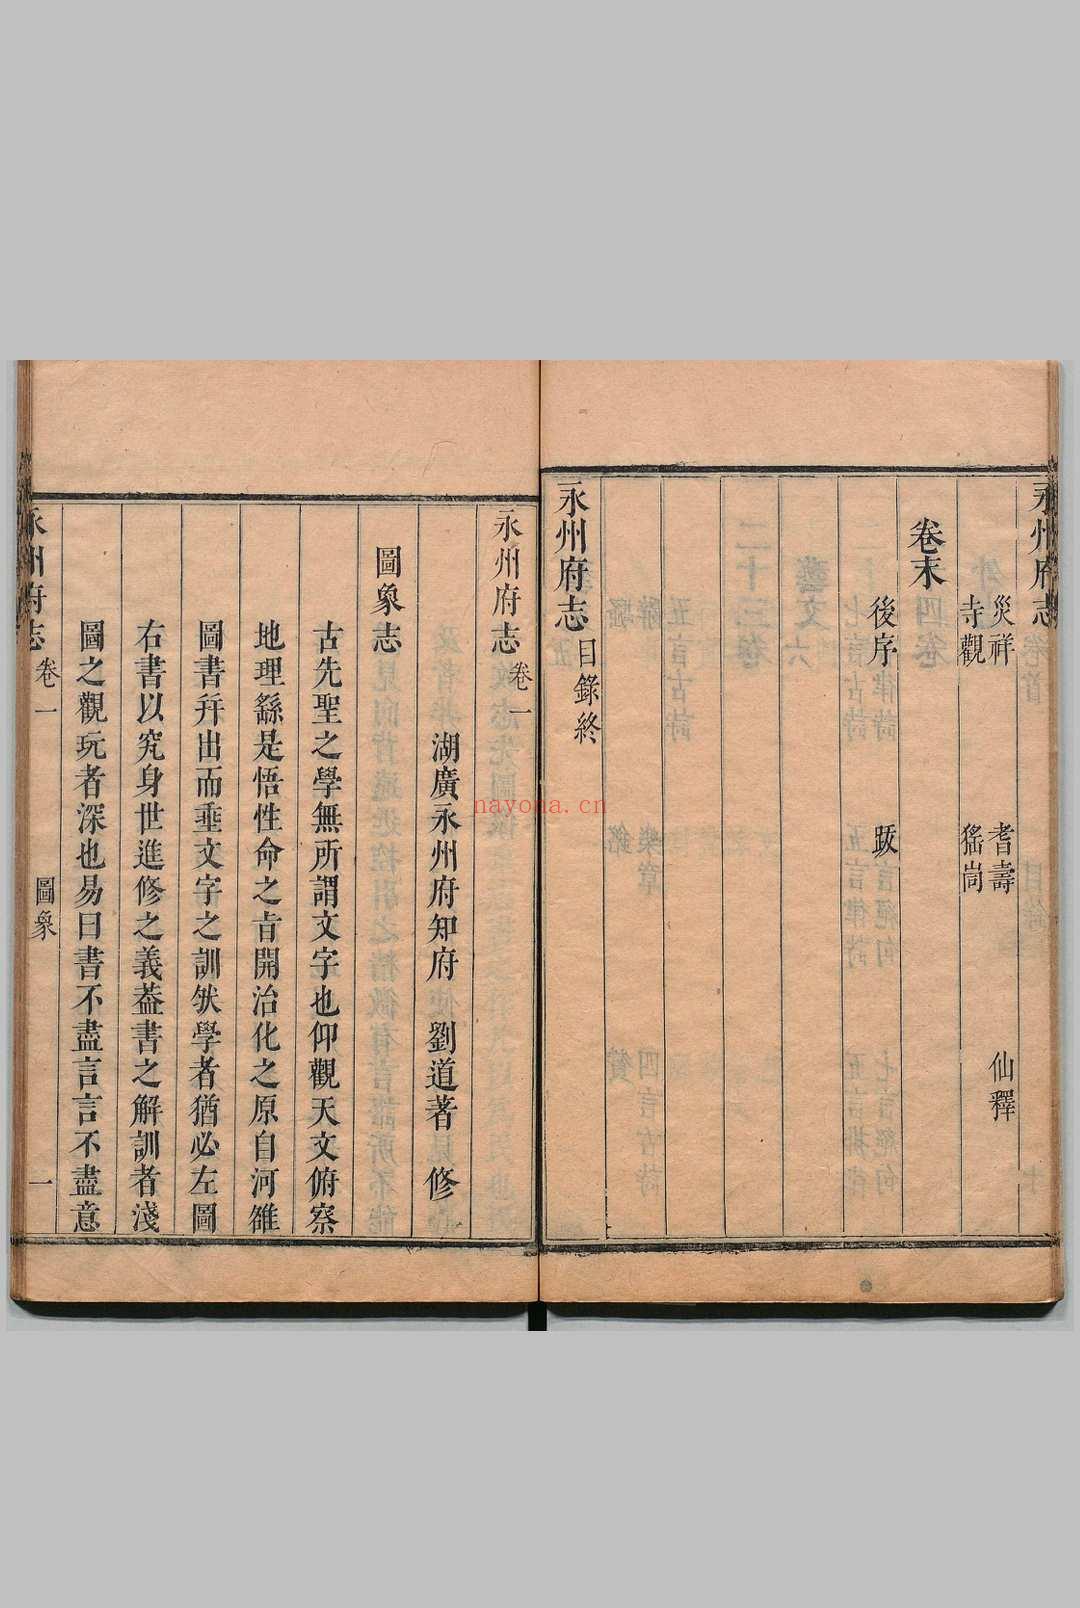 永州府志 卷首 目錄
災祥 耆壽 仙釋
寺觀 猺峝
卷末
後序 跋
永州府志 目錄終
永州府志 卷一
湖廣永州府知府 劉道著 修
圖象志
古先聖之學無所謂文字也仰觀天文俯察
地理繇是悟性命之㫖開治化之原自河雒
圖書幷出而垂文字之訓然學者猶必左圖
右書以究身世進修之義葢書之解訓者淺
圖之觀玩者深也易曰書不盡言言不盡意
永州府志 卷一 圖象 一
nayona.cn